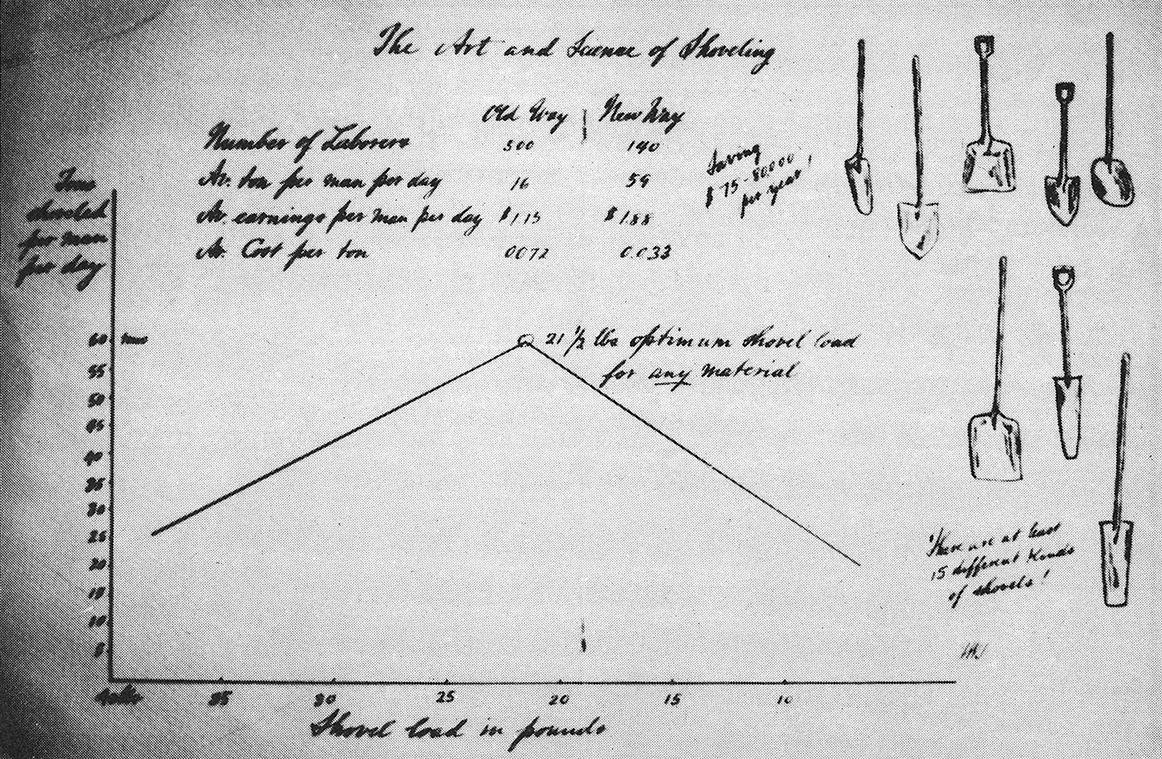 The Art and Science of Shoveling
Old Way | New Way
Number of Laborers 500 140
Av. ton per man per day 16 59
Av. earnings per man per day $1.15 $1.88
Av. Cost per ton 0072 0.033
Saving
$75-80,000
per year!
Tons
shoveled
per man
per day
60 tons
21 1/2 lbs optimum shovel load
for any material
55
50
45
40
35
30
25
20
15
10
5
There are at least
15 different kinds
of shovels!
40 lbs 35 30 25 20 15 10
Shovel load in pounds